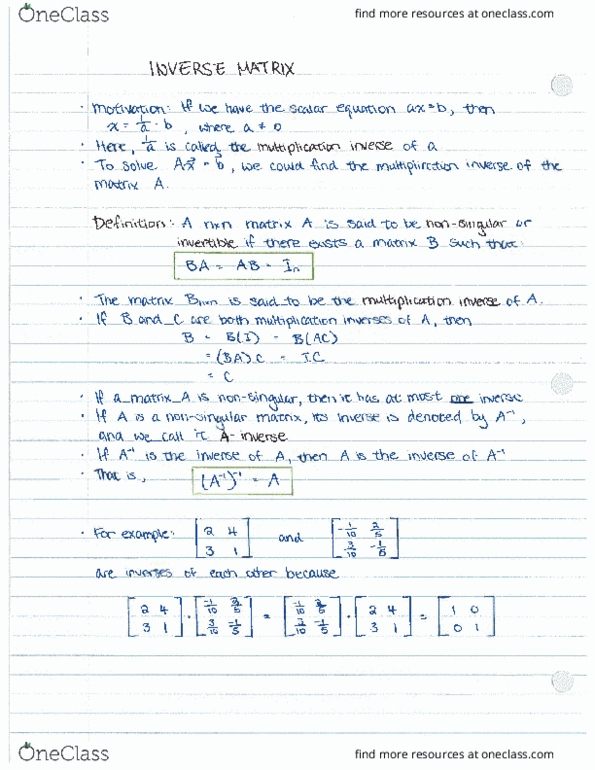 OneClass find more resources at oneclass.com
INVERSE MATRIX
• Motivation: If we have the scalar equation ax=b, then
x = 1/a · b, where a ≠ 0
• Here, 1/a is called the multiplication inverse of a
• To solve Ax⃗ = b⃗, we could find the multiplication inverse of the
matrix A.
Definition: A nxn matrix A is said to be non-singular or
invertible if there exists a matrix B such that:
BA = AB = Iₙ
• The matrix Bₙₓₙ is said to be the multiplication inverse of A.
• If B and C are both multiplication inverses of A, then
B = B(I) = B(AC)
= (BA)C = I.C
= C
• If a matrix A is non-singular, then it has at most one inverse
• If A is a non-singular matrix, its inverse is denoted by A⁻¹,
and we call it A-inverse
• If A⁻¹ is the inverse of A, then A is the inverse of A⁻¹
• That is, (A⁻¹)⁻¹ = A
• For example: [2 4; 3 1] and [-1/10 2/5; 3/10 -1/5]
are inverses of each other because
[2 4; 3 1] · [-1/10 2/5; 3/10 -1/5] = [-1/10 2/5; 3/10 -1/5] · [2 4; 3 1] = [1 0; 0 1]
OneClass find more resources at oneclass.com